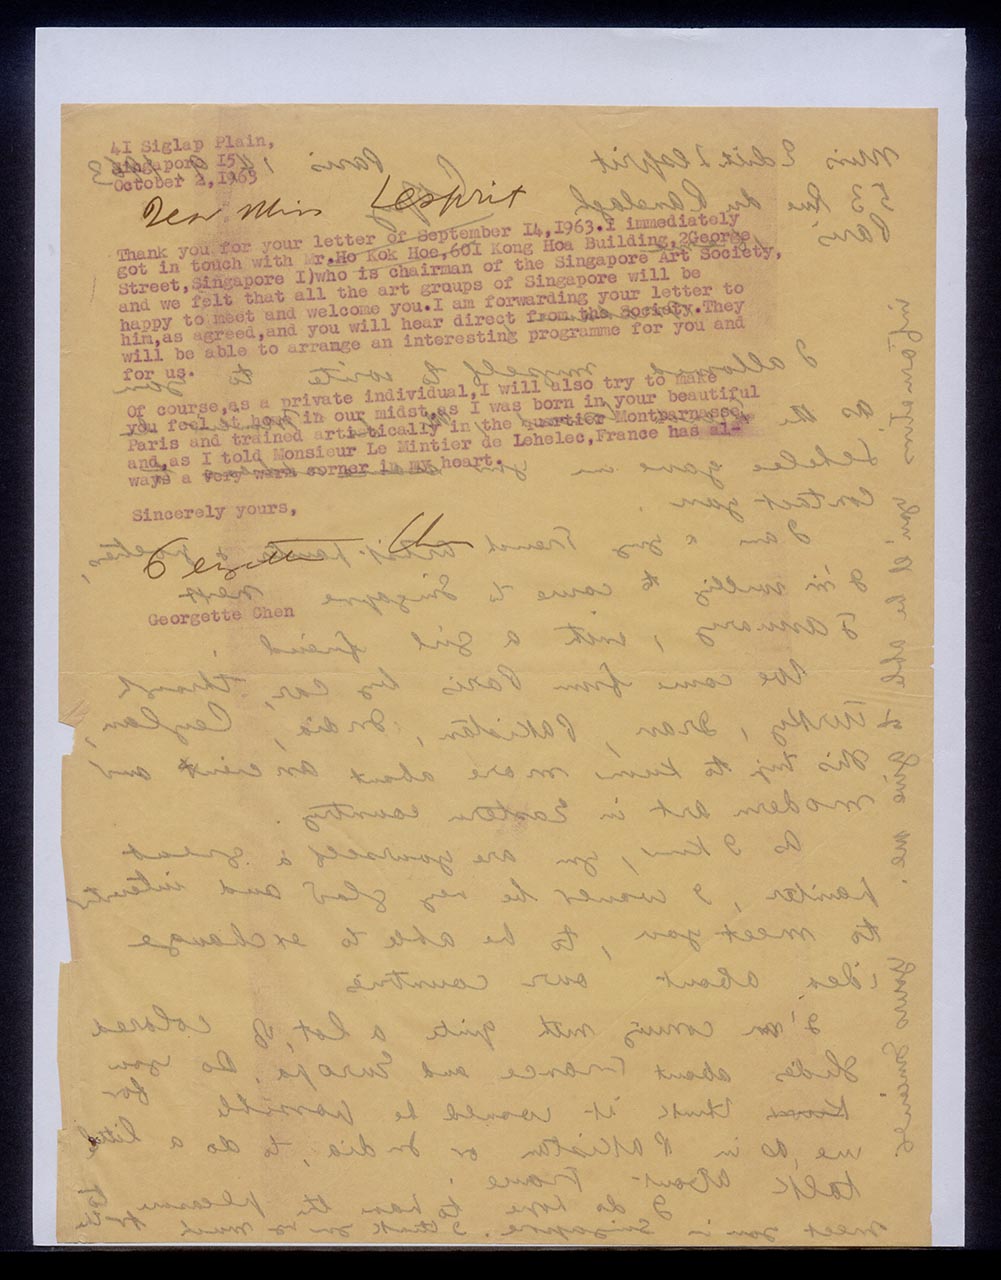 41 Siglap Plain,
Singapore 15
October 2,1963
Dear Miss Lesprit
Thank you for your letter of September 14,1963.I immediately
got in touch with Mr.Ho Kok Hoe,601 Kong Hoa Building,2George
Street,Singapore 1)who is chairman of the Singapore Art Society,
and we felt that all the art groups of Singapore will be
happy to meet and welcome you.I am forwarding your letter to
him,as agreed,and you will hear direct from the Society.They
will be able to arrange an interesting programme for you and
for us.
Of course,as a private individual,I will also try to make
you feel at home in our midst,as I was born in your beautiful
Paris and trained artistically in the quartier Montparnasse,
and,as I told Monsieur Le Mintier de Lehelec,France has al-
ways a very warm corner in my heart.
Sincerely yours,
Georgette Chen
Georgette Chen
Miss Edith Lesprit Paris 14 9 1963
53 Rue du Ranelagh
Paris
I allowed myself to write to you
as the
Lehelec gave me
contact you.
I am a young French artist
I'm willing to come to Singapore next
January, with a girl friend,
We come from Paris by car, through
Turkey, Iran, Pakistan, India, Ceylon,
this trip to know more about ancient and
modern art in Eastern country
As I know, you are yourself a great
painter, I would be very glad and
to meet you, to be able to exchange
idea about our countries
I'm coming with quite a lot of colored
slides about France and Europa. Do you
think it would be possible for
me, as in Pakistan or India, to do a little
talk about France.
I do hope to have the pleasure to
meet you in Singapore. I thank you so much for the
information you'll be able to give me. Yours Sincerely